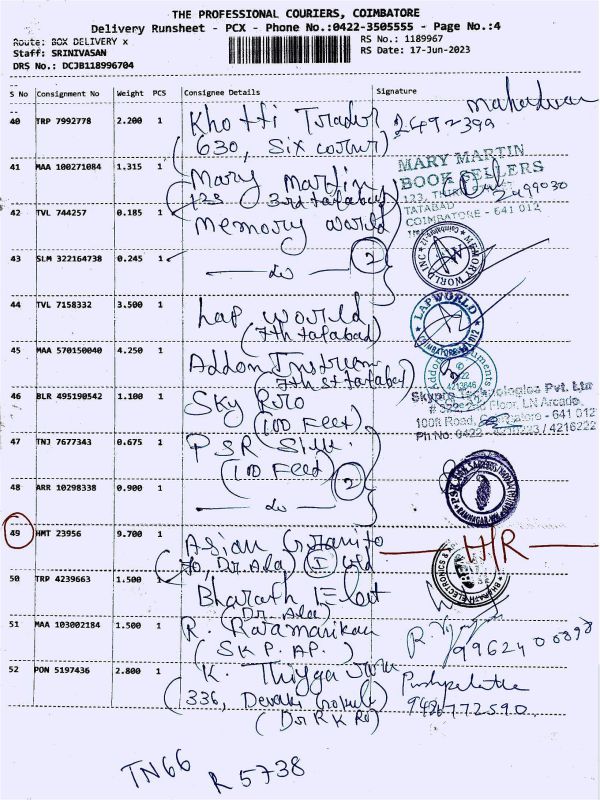 THE PROFESSIONAL COURIERS, COIMBATORE
Delivery Runsheet - PCX - Phone No.:0422-3505555 - Page No.:4
Route: BOX DELIVERY x
RS No.: 1189967
Staff: SRINIVASAN
RS Date: 17-Jun-2023
DRS No.: DCJB118996704
S No Consignment No Weight PCS Consignee Details Signature
40 TRP 7992778 2.200 1 Khotti Trader 2492399
(630, Six corner)
41 MAA 100271084 1.315 1 Mary Martin
(125 3rd tatabad)
MARY MARTIN
BOOK SELLERS
TATABAD
COIMBATORE - 641 012
2499030
42 TVL 744257 0.185 1 Memory World
43 SLM 322164738 0.245 1 — do — 2
MEMORY WORLD INC
44 TVL 7158332 3.500 1 Lap World
(7th tatabad)
LAP WORLD
COIMBATORE-641 012
45 MAA 570150040 4.250 1 Addon Instrum
(7th st tatabad)
46 BLR 495190542 1.100 1 Sky Pro
(100 Feet)
Skypro Technologies Pvt. Ltd
Floor, LN Arcade
100ft Road, Coimbatore - 641 012
Ph No: 0422 - / 4216222
47 TNJ 7677343 0.675 1 PSR Silk.
(100 Feet)
48 ARR 10298338 0.900 1 — do — 2
49 HMT 23956 9.700 1 Asian Granito
(70, Dr. Ala) I Ltd
H/R
50 TRP 4239663 1.500 1 Bharath Elect
(Dr. Ala)
BHARATH ELECTRONICS &
51 MAA 103002184 1.500 1 R. Ramanikan
(S K P. AP.)
52 PON 5197436 2.800 1 K. Thiyga
(336, Devaki
(Dr R K Rd)
Pushpalatha
9486772590
TN66 R 5738